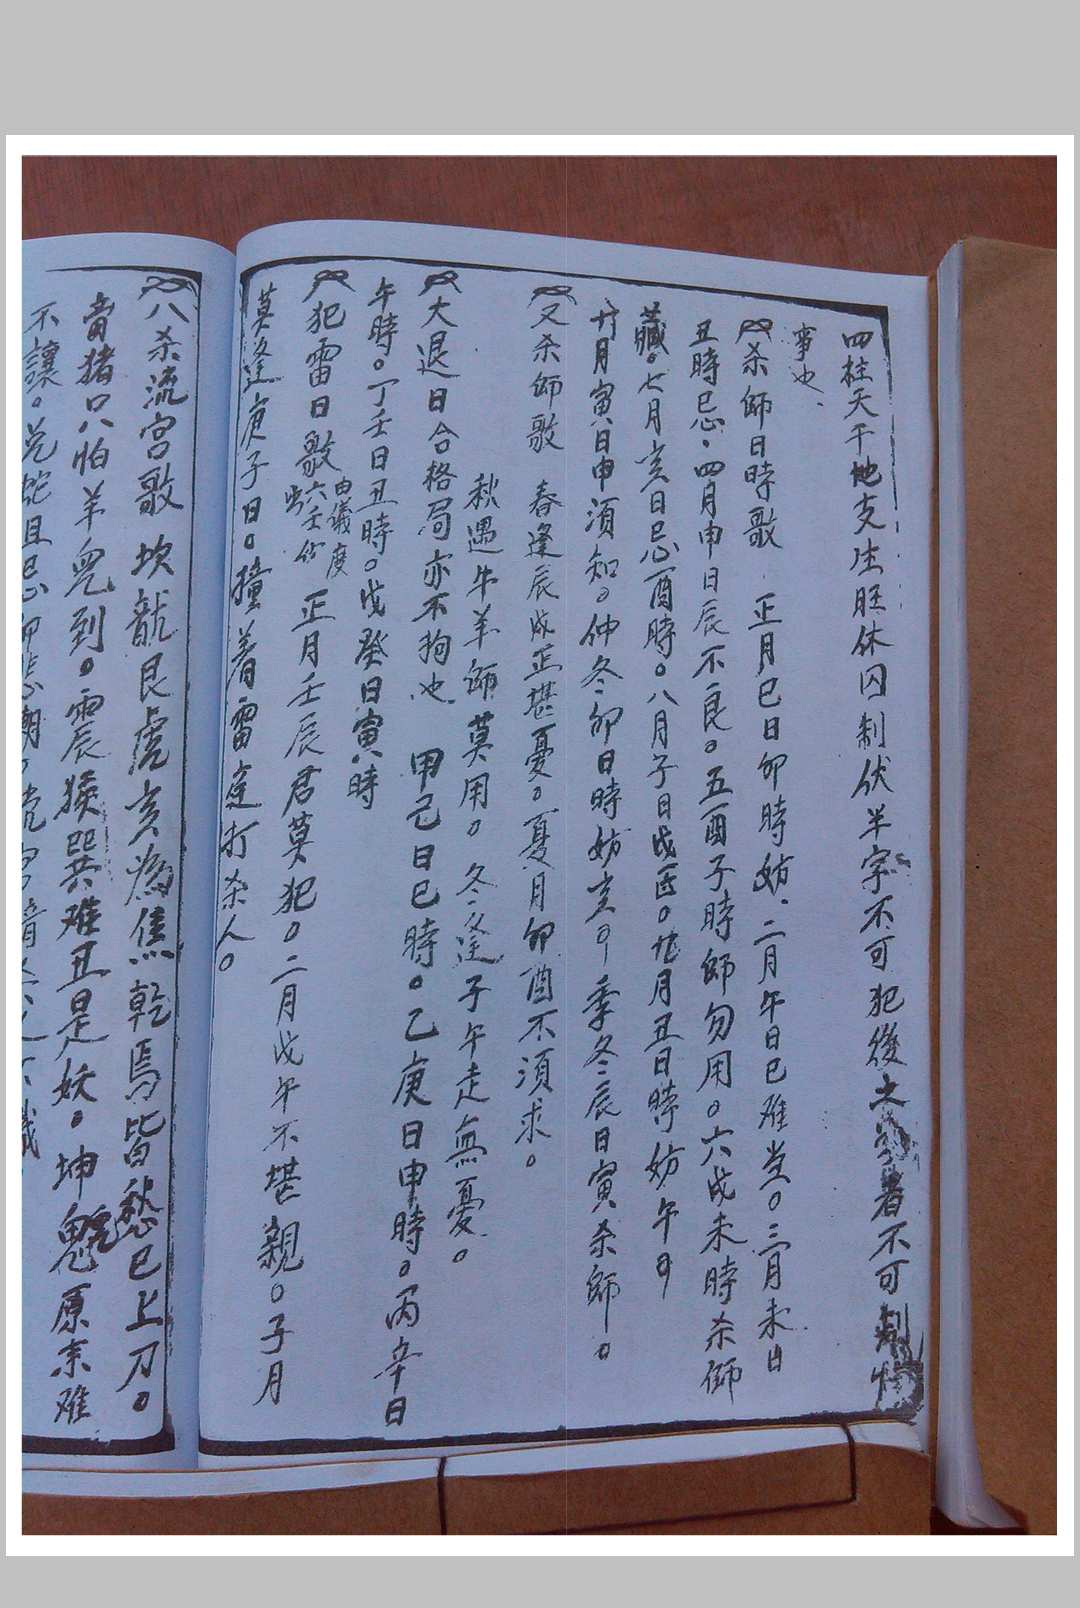 四柱天干地支生旺休囚制伏半字不可犯後之 者不可
事也
杀師日時歌 正月巳日卯時妨.二月午日巳难当。三月未日
丑時忌.四月申日辰不良。五酉子時師勿用。六戌未時杀師
藏。七月亥日忌酉時。八月子日戌 。九月丑日時妨午。
十月寅日申須知。仲冬卯日時妨亥。季冬辰日寅杀師。
又杀師歌 春逢辰戌正堪憂。夏月卯酉不須求。
秋遇牛羊師莫用。冬逢子午走無憂。
大退日合格局亦不拘也 甲己日巳時。乙庚日申時。丙辛日
午時。丁壬日丑時。戊癸日寅時
犯雷日歌 六壬 由儀度 正月壬辰君莫犯。二月戊午不堪親。子月
莫逢庚子日。撞着雷 打杀人。
八杀流宫歌 坎龍艮虎亥為焦 乾馬皆愁巳上刀。
當猪只怕羊兜到。震猴巽难丑是妖。坤 原来难
不讓。兑蛇且忌卯